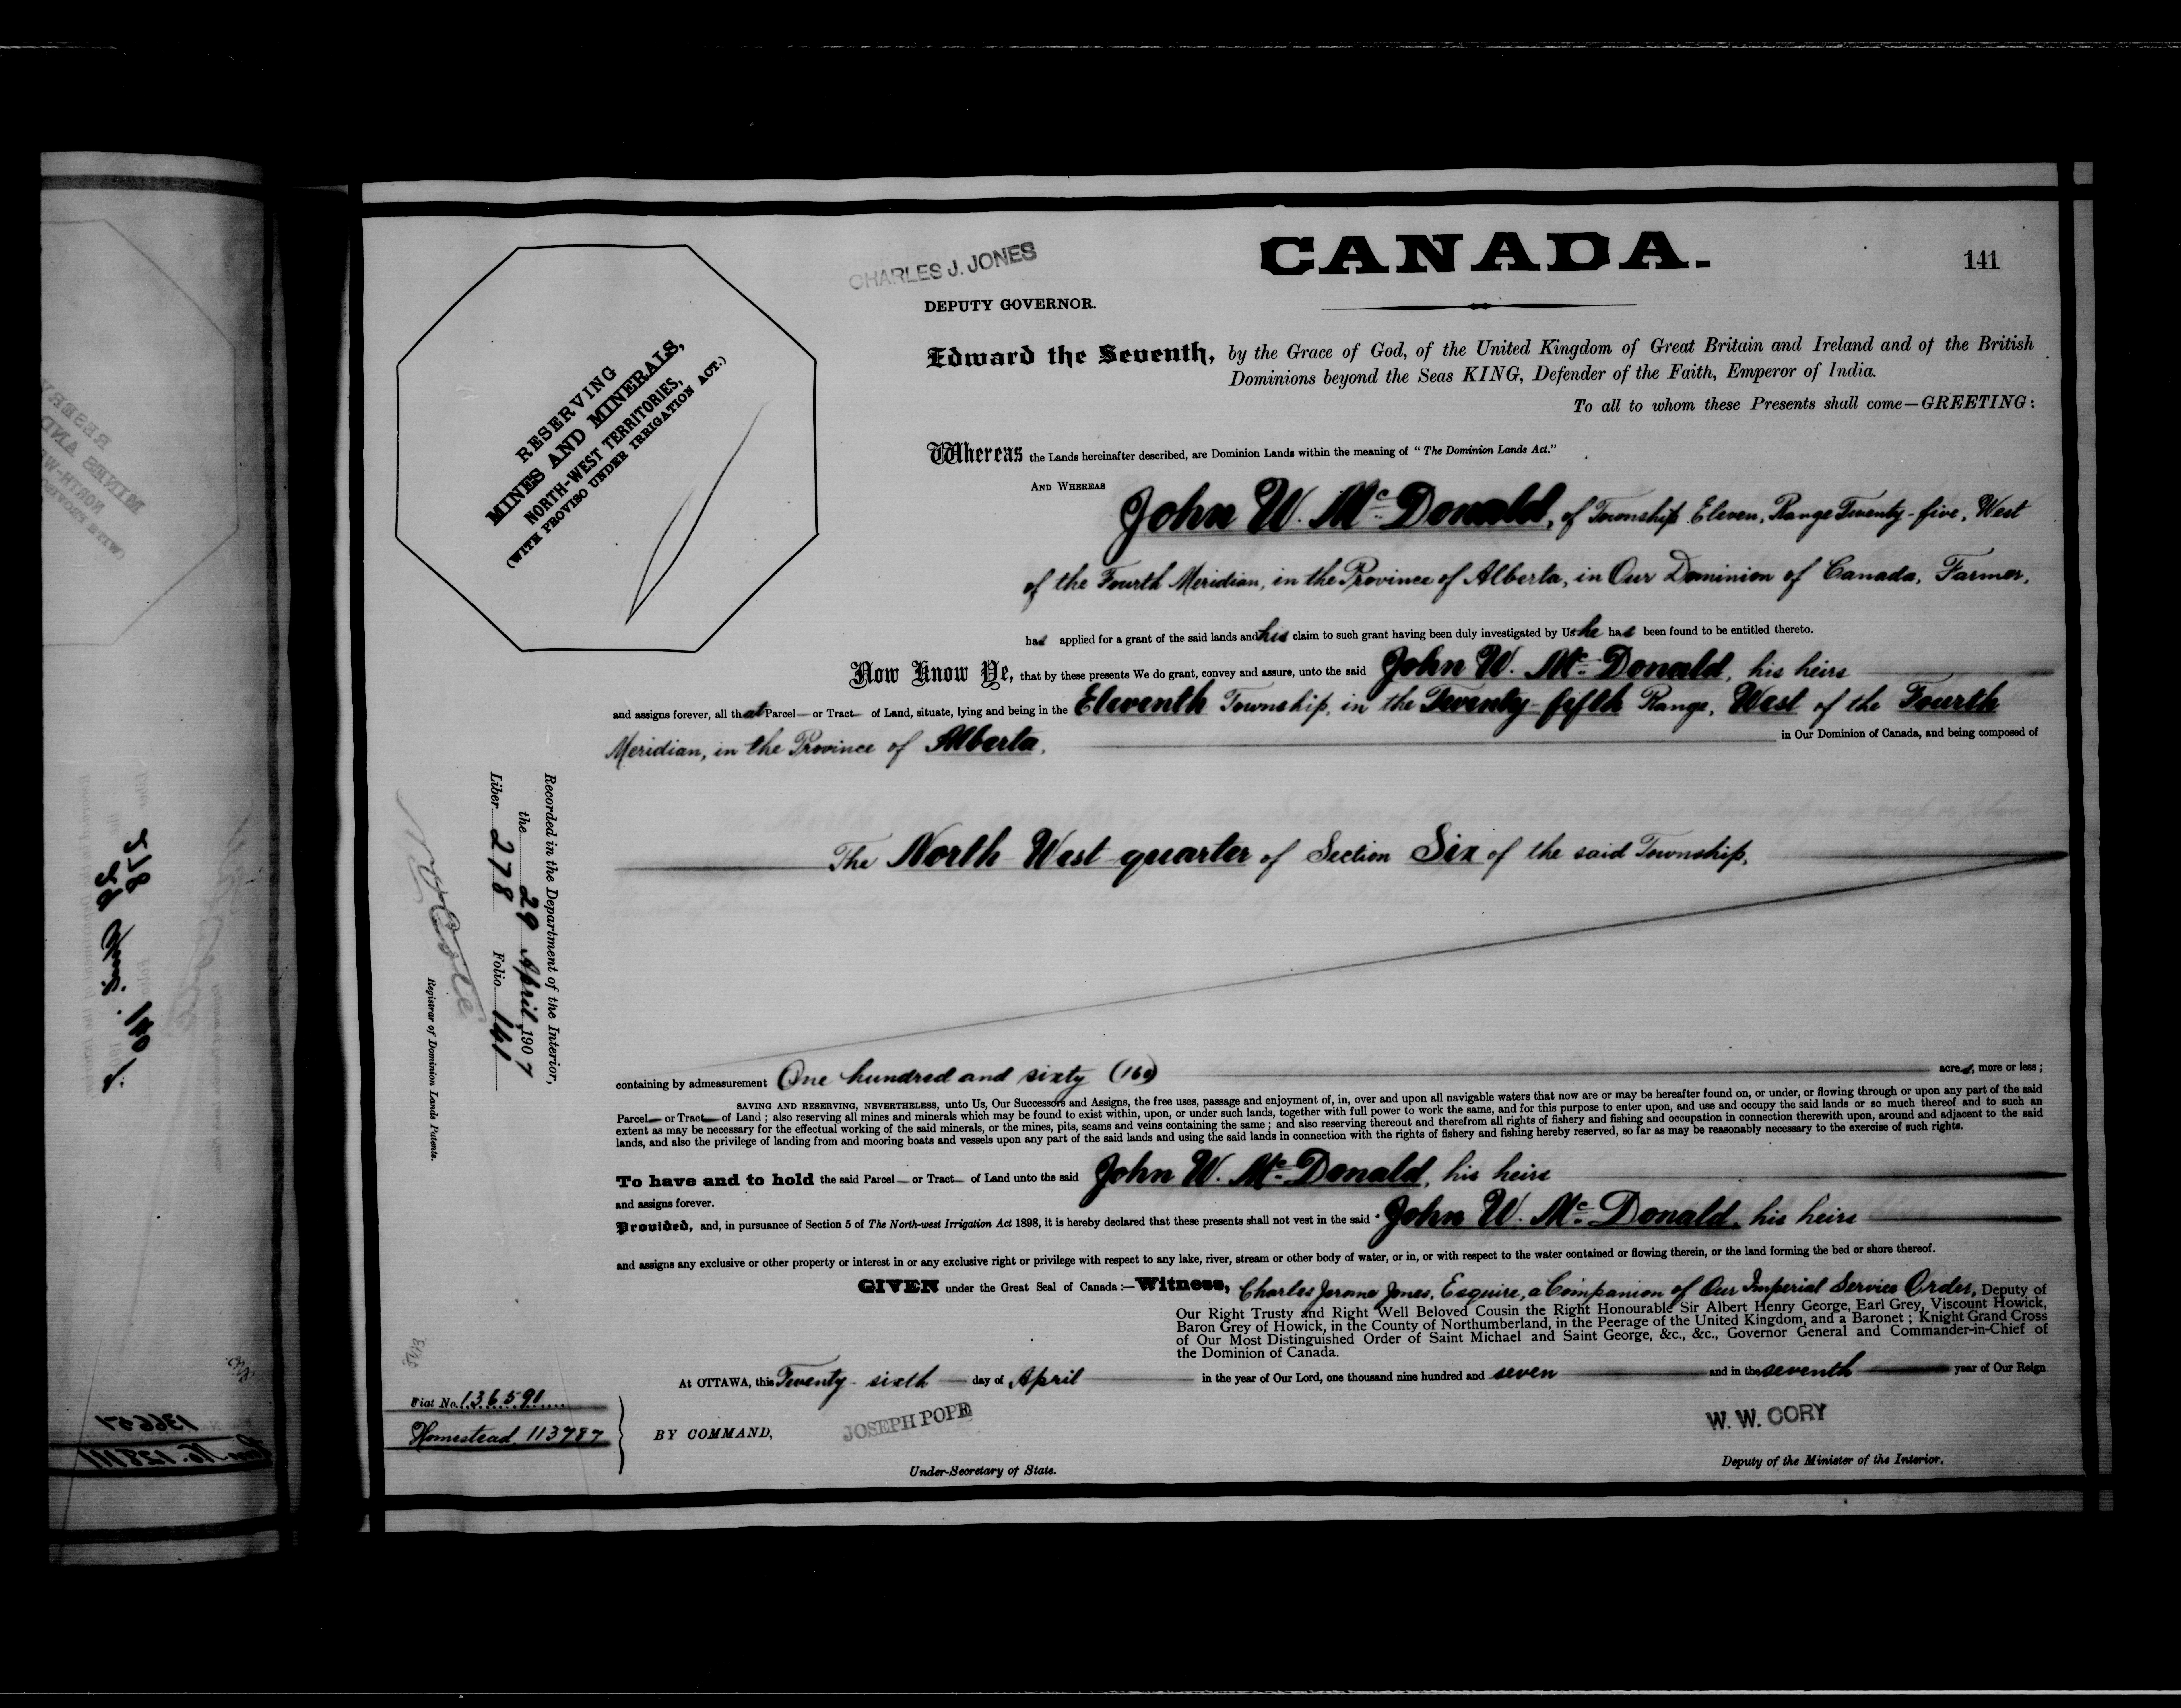 CANADA.
141
CHARLES J. JONES
DEPUTY GOVERNOR.
RESERVING
MINES AND MINERALS,
NORTH-WEST TERRITORIES,
(WITH PROVISO UNDER IRRIGATION ACT.)
Edward the Seventh, by the Grace of God, of the United Kingdom of Great Britain and Ireland and of the British
Dominions beyond the Seas KING, Defender of the Faith, Emperor of India.
To all to whom these Presents shall come—GREETING:
Whereas the Lands hereinafter described, are Dominion Lands within the meaning of "The Dominion Lands Act."
AND WHEREAS
John W. McDonald, of Township Eleven, Range Twenty-five, West
of the Fourth Meridian, in the Province of Alberta, in Our Dominion of Canada, Farmer,
has applied for a grant of the said lands and his claim to such grant having been duly investigated by Us he has been found to be entitled thereto.
Now Know Ye, that by these presents We do grant, convey and assure, unto the said John W. McDonald, his heirs
and assigns forever, all that Parcel or Tract of Land, situate, lying and being in the Eleventh Township, in the Twenty-fifth Range, West of the Fourth
Meridian, in the Province of Alberta, in Our Dominion of Canada, and being composed of
The North West quarter of Section Six of the said Township,
Recorded in the Department of the Interior,
the 29 April 1907
Liber 278 Folio 141
Registrar of Dominion Lands Patents.
containing by admeasurement One hundred and sixty (160) acres, more or less;
SAVING AND RESERVING, NEVERTHELESS, unto Us, Our Successors and Assigns, the free uses, passage and enjoyment of, in, over and upon all navigable waters that now are or may be hereafter found on, or under, or flowing through or upon any part of the said
Parcel or Tract of Land; also reserving all mines and minerals which may be found to exist within, upon, or under such lands, together with full power to work the same, and for this purpose to enter upon, and use and occupy the said lands or so much thereof and to such an
extent as may be necessary for the effectual working of the said minerals, or the mines, pits, seams and veins containing the same; and also reserving thereout and therefrom all rights of fishery and fishing and occupation in connection therewith upon, around and adjacent to the said
lands, and also the privilege of landing from and mooring boats and vessels upon any part of the said lands and using the said lands in connection with the rights of fishery and fishing hereby reserved, so far as may be reasonably necessary to the exercise of such rights.
To have and to hold the said Parcel or Tract of Land unto the said John W. McDonald, his heirs
and assigns forever.
Provided, and, in pursuance of Section 5 of The North-west Irrigation Act 1898, it is hereby declared that these presents shall not vest in the said John W. McDonald, his heirs
and assigns any exclusive or other property or interest in or any exclusive right or privilege with respect to any lake, river, stream or other body of water, or in, or with respect to the water contained or flowing therein, or the land forming the bed or shore thereof.
GIVEN under the Great Seal of Canada:—Witness, Charles Jerome Jones, Esquire, a Companion of Our Imperial Service Order, Deputy of
Our Right Trusty and Right Well Beloved Cousin the Right Honourable Sir Albert Henry George, Earl Grey, Viscount Howick,
Baron Grey of Howick, in the County of Northumberland, in the Peerage of the United Kingdom, and a Baronet; Knight Grand Cross
of Our Most Distinguished Order of Saint Michael and Saint George, &c., &c., Governor General and Commander-in-Chief of
the Dominion of Canada.
At OTTAWA, this Twenty-sixth day of April in the year of Our Lord, one thousand nine hundred and seven and in the seventh year of Our Reign
Fiat No. 136591
Homestead, 113787
BY COMMAND,
JOSEPH POPE
Under-Secretary of State.
W. W. CORY
Deputy of the Minister of the Interior.